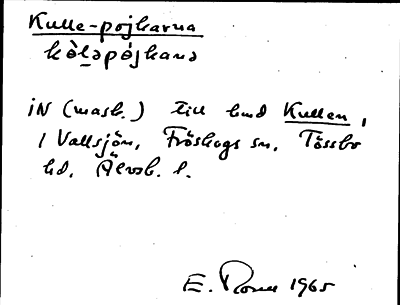 Kulle-pojkarna
kòləpȯjkanə
iN (mask.) till hmd Kullen,
1 Vallsjön, Fröskogs sn, Tössbo
hd, Älvsb. l.
E. 1965